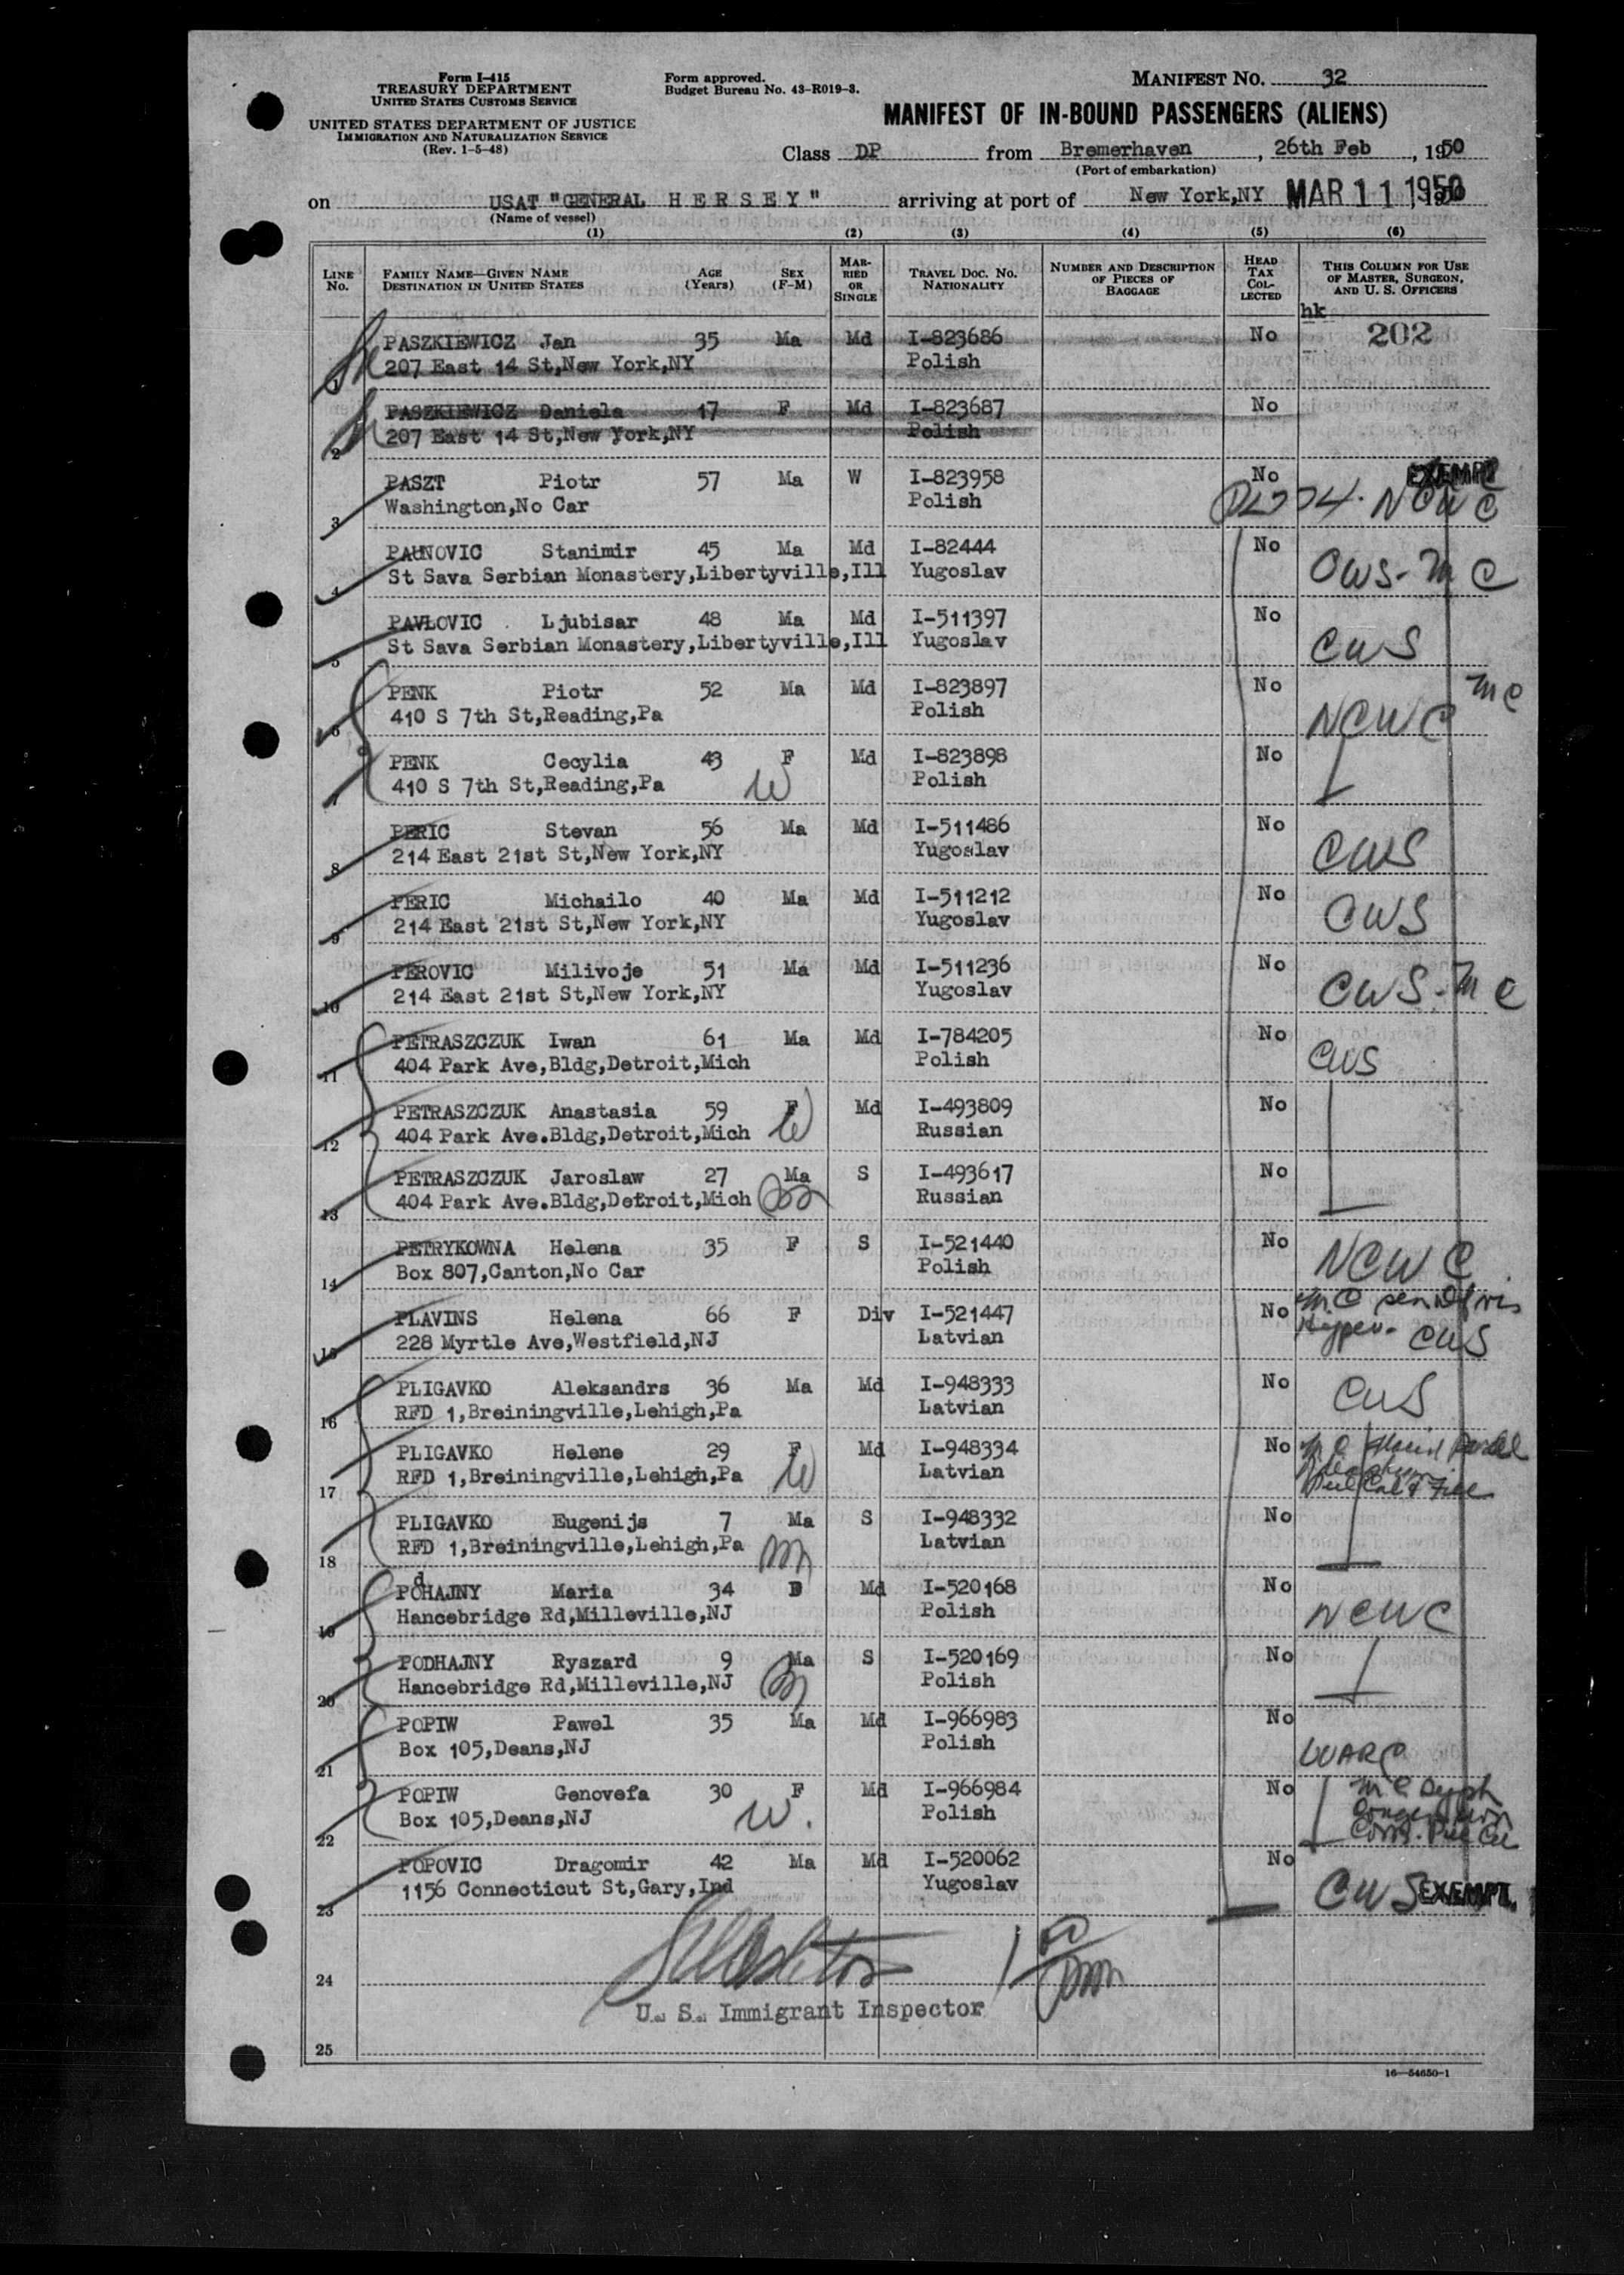 Form I-415
TREASURY DEPARTMENT
UNITED STATES CUSTOMS SERVICE
UNITED STATES DEPARTMENT OF JUSTICE
IMMIGRATION AND NATURALIZATION SERVICE
(Rev. 1-5-48)
Form approved.
Budget Bureau No. 43-R019-3.
MANIFEST NO. 32
MANIFEST OF IN-BOUND PASSENGERS (ALIENS)
Class DP from Bremerhaven, 26th Feb, 1950
(Port of embarkation)
on USAT "GENERAL HERSEY" arriving at port of New York,NY MAR 11 1950
(Name of vessel)
(1) (2) (3) (4) (5) (6)
LINE NO. FAMILY NAME—GIVEN NAME DESTINATION IN UNITED STATES AGE (YEARS) SEX (F-M) MARRIED OR SINGLE TRAVEL DOC. NO. NATIONALITY NUMBER AND DESCRIPTION OF PIECES OF BAGGAGE HEAD TAX COLLECTED THIS COLUMN FOR USE OF MASTER, SURGEON, AND U. S. OFFICERS
hk
PASZKIEWICZ Jan 35 Ma Md I-823686 No 202
1 207 East 14 St,New York,NY Polish
PASZKIEWICZ Daniela 17 F Md I-823687 No
2 207 East 14 St,New York,NY Polish
PASZT Piotr 57 Ma W I-823958 No EXEMPT
3 Washington,No Car Polish NCWC
PAUNOVIC Stanimir 45 Ma Md I-82444 No
4 St Sava Serbian Monastery,Libertyville,Ill Yugoslav CWS-MC
PAVLOVIC Ljubisar 48 Ma Md I-511397 No
5 St Sava Serbian Monastery,Libertyville,Ill Yugoslav CWS
PENK Piotr 52 Ma Md I-823897 No MC
6 410 S 7th St,Reading,Pa Polish NCWC
PENK Cecylia 43 F Md I-823898 No
7 410 S 7th St,Reading,Pa W Polish
PERIC Stevan 56 Ma Md I-511486 No
8 214 East 21st St,New York,NY Yugoslav CWS
PERIC Michailo 40 Ma Md I-511212 No
9 214 East 21st St,New York,NY Yugoslav CWS
PEROVIC Milivoje 51 Ma Md I-511236 No
10 214 East 21st St,New York,NY Yugoslav CWS-MC
PETRASZCZUK Iwan 61 Ma Md I-784205 No
11 404 Park Ave,Bldg,Detroit,Mich Polish CWS
PETRASZCZUK Anastasia 59 F Md I-493809 No
12 404 Park Ave.Bldg,Detroit,Mich W Russian
PETRASZCZUK Jaroslaw 27 Ma S I-493617 No
13 404 Park Ave.Bldg,Detroit,Mich Russian
PETRYKOWNA Helena 35 F S I-521440 No
14 Box 807,Canton,No Car Polish NCWC
PLAVINS Helena 66 F Div I-521447 No MC
15 228 Myrtle Ave,Westfield,NJ Latvian CWS
PLIGAVKO Aleksandrs 36 Ma Md I-948333 No
16 RFD 1,Breiningville,Lehigh,Pa Latvian CWS
PLIGAVKO Helene 29 F Md I-948334 No MC
17 RFD 1,Breiningville,Lehigh,Pa W Latvian
PLIGAVKO Eugenijs 7 Ma S I-948332 No
18 RFD 1,Breiningville,Lehigh,Pa m Latvian
PODHAJNY Maria 34 F Md I-520168 No
19 Hancebridge Rd,Milleville,NJ Polish NCWC
PODHAJNY Ryszard 9 Ma S I-520169 No
20 Hancebridge Rd,Milleville,NJ Polish
POPIW Pawel 35 Ma Md I-966983 No
21 Box 105,Deans,NJ Polish
POPIW Genovefa 30 F Md I-966984 No MC
22 Box 105,Deans,NJ W. Polish
POPOVIC Dragomir 42 Ma Md I-520062 No
23 1156 Connecticut St,Gary,Ind Yugoslav CWS EXEMPT.
24
U. S. Immigrant Inspector
25
16—54650-1